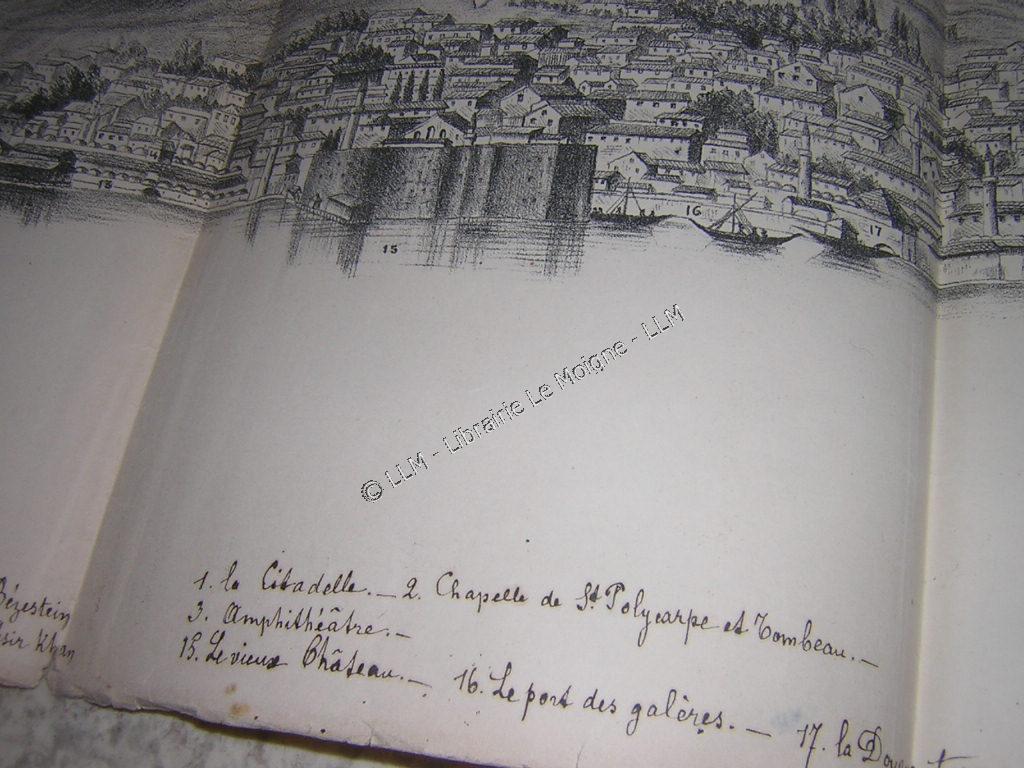 15 16 17
15
© LLM - Librairie Le Moigne - LLM
Bézestein
Khan
1. la Citadelle. — 2. Chapelle de St Polycarpe et Tombeau. —
3. Amphithéâtre. —
15. Le vieux Château. — 16. Le port des galères. — 17. la